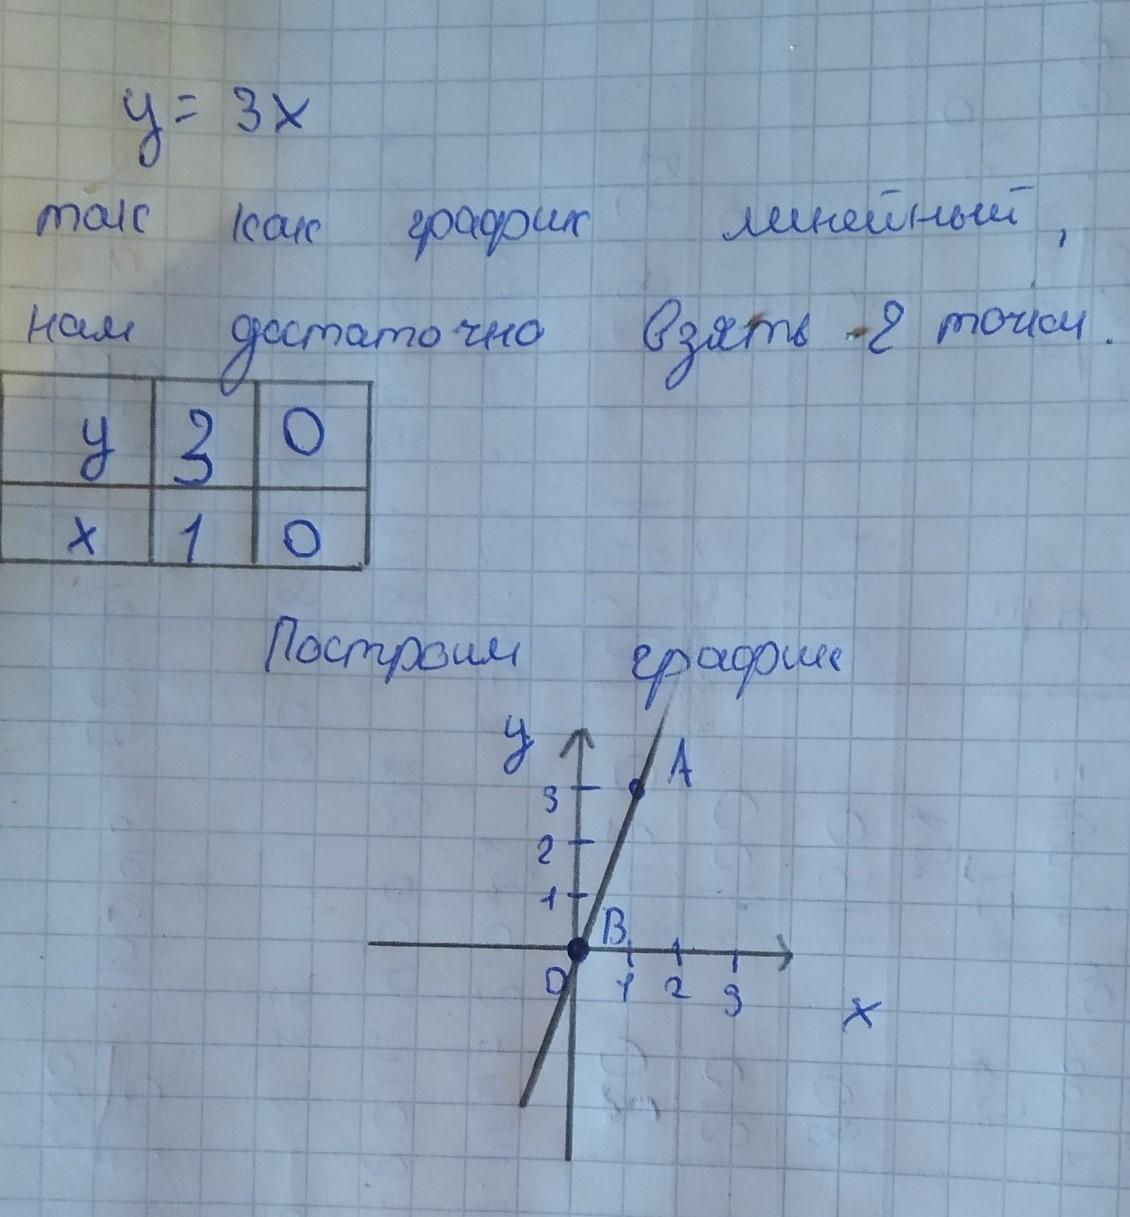 y = 3x
так как график линейный,
нам достаточно взять 2 точки.
y 3 0
x 1 0
Построим график
y
A
3
2
1
B
0 1 2 3
x